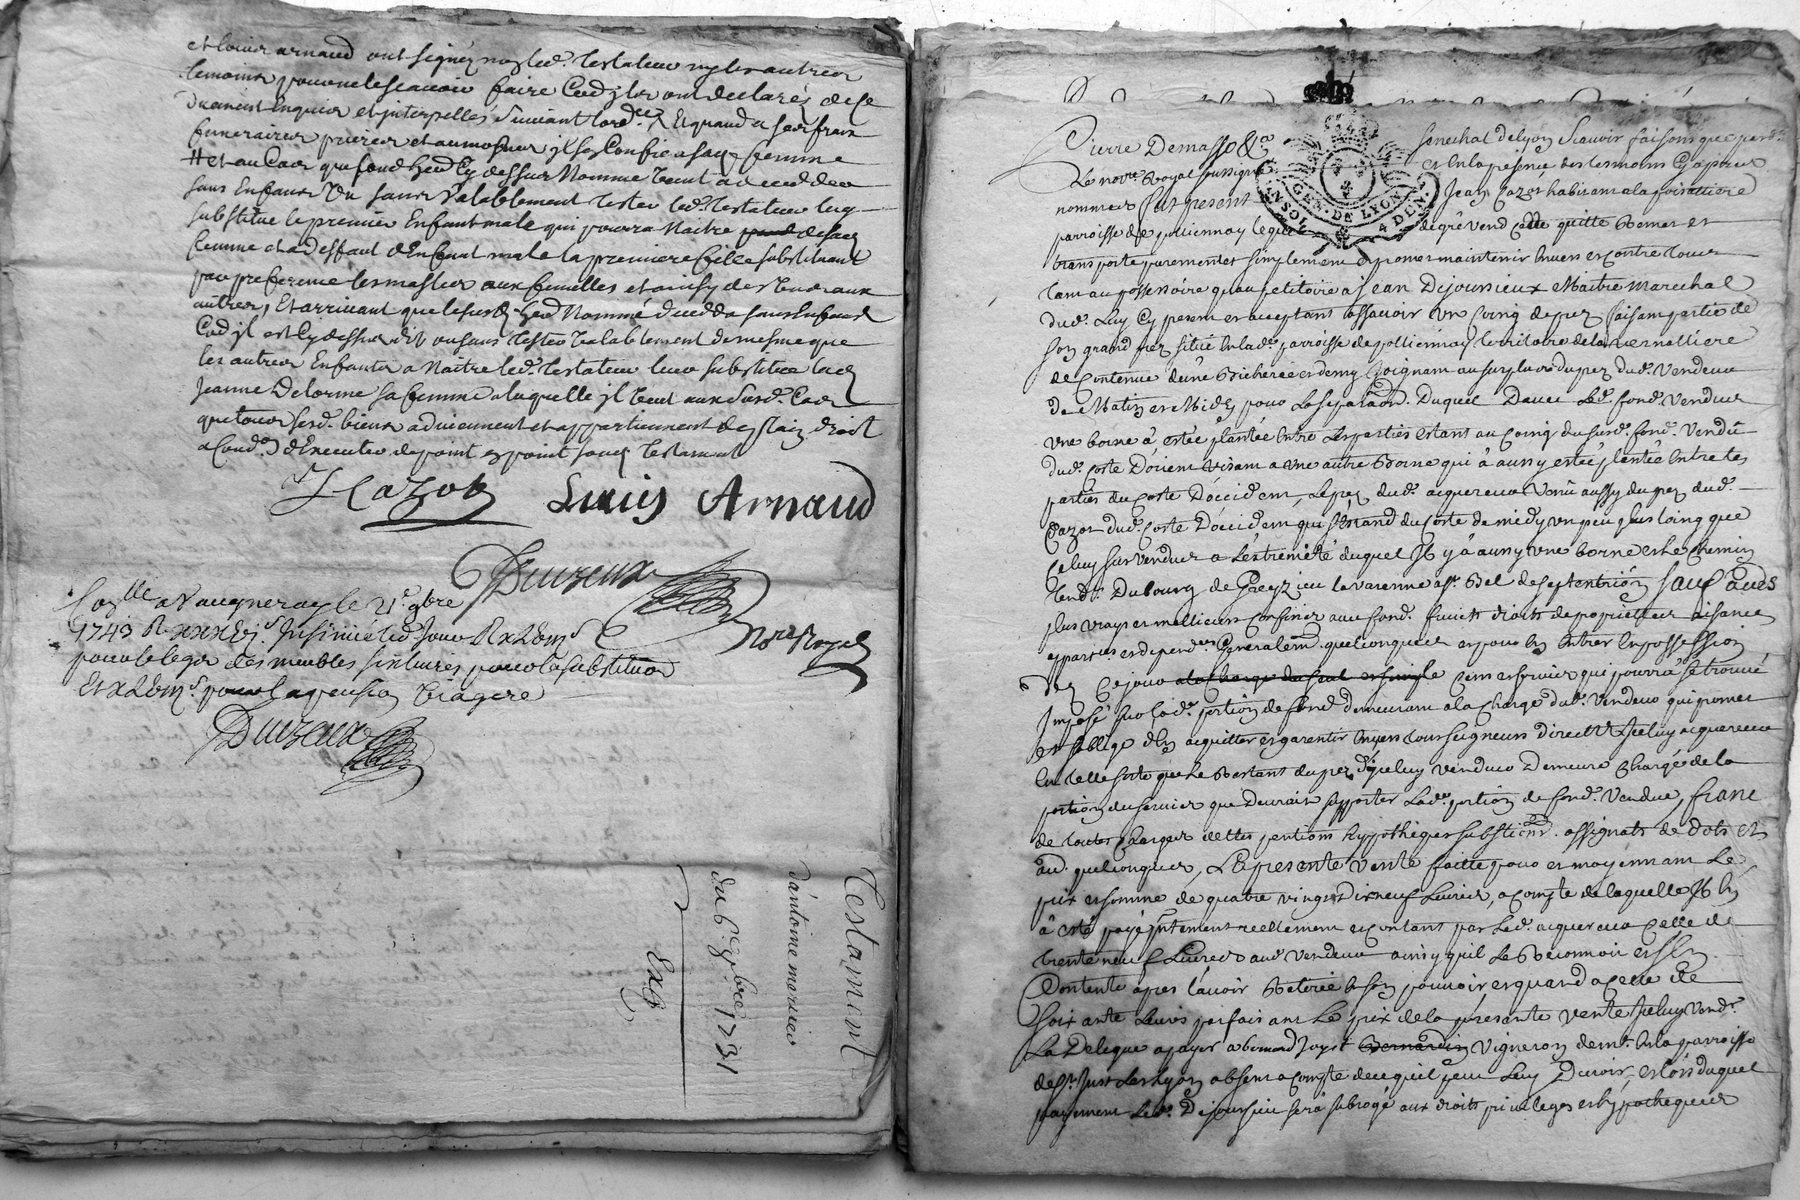 et Louis arnaud ont signés non led. testateur ny les autres
temoins pour ne le scavoir faire Cad ils ont declarés de ce
duement Enquis et interpellés suivant lord.ce Et quand a ses frais
funeraires prieres et aumosnes il se Confie a sad. femme
et au Cas que sond. hed. Cy dessus Nommé vient a deceder
sans Enfans ou sans valablement tester led. testateur luy
substitue le premier Enfant male qui pourra Naitre de sad.
femme et a deffaut d'Enfant male la premiere fille substituant
par preference les masles aux femelles et ainsy des uns aux
autres, Et arrivant que le susd. hed. Nommé deceda sans Enfans
Cad il est Cy dessus dit ou sans tester valablement de mesme que
les autres Enfants a Naitre led. testateur leur substitue lad.
Jeanne Delorme sa femme a laquelle il veut aux susd. Cas
que tous sesd. biens adviennent et appartiennent de plain droit
a Cond.on d'Executer de point en point son testament
Cazot Louis Arnaud
Duizeux
No.re Royal
Con.lle a Vaugneray le 21.e 9bre
1743 R xxx Insinué led. jour R
pour le legs des meubles pour la substituon
Et pour la pension viagere
Duizeux
Testament
d'antoine mercier
du 6.e 9bre 1731
Exp.
Pierre Demasso &.a senechal de lyon Scavoir faisons que pard.
Le no.re Royal soussigné et En la presence des tesmoins Cy apres
nommés fut present Jean Cazot habitant a la poizattiere
parroisse de pollionnay lequel de gré vend cedde quitte Remet et
transporte purement et simplement et promet maintenir Envers et Contre tous
tant au possessoire qu'au petitoire a Jean Dijoursieux Maitre Marechal
dud. Luy Cy present et acceptant assavoir un Coing de prez faisant partie de
son grand prez situé En lad. parroisse de pollionnay territoire de la vernattiere
de Contenue d'une Bicherée et demy Joignant au surplus du prez dud. Vendeur
de Matin et Midy pour La separaon. Duquel Davec Led. fond. Vendus
une borne à estée plantée Entre Les parties estant au Coing du susd. fond. Vendu
dud. Coste D'orient visant a une autre Borne qui à aussy estée plantée Entre les
parties du Coste D'occident, Le prez dud. acquereur Venu aussy du prez dud.
Cazot dud. Coste D'occident qui s'étand du Coste de midy un peu plus loing que
Celuy sus vendus a L'extremité duquel Il y à aussy une borne et Le Chemin
tend.t Du bourg de Grezieu la varenne a St. Bel de septentrion sauf à ces
plus vrays et meilleurs Confins avec fond. fruits droits de proprietter aisances
appart.ces et depend.ces Generalem.t quelconques et pour En Entrer En possession
dez Ce jour Cens et servis qui pourra se trouvé
Imposé sur lad. portion de fond demeurant a la Charge dud. Vendeur qui promet
et s'oblige d'En acquitter et garentir Envers tous seigneurs directs Iceluy acquereur
En telle sorte que Le Restant du prez d'iceluy Vendeur Demeure Chargé de la
portion du servis que Devroit supporter Lad. portion de fond. Vendue, franc
de toutes Charges dettes pentions hyppotheques substions. assignats de dots et
aud. quelconques, La presente vente faitte pour et moyennant Le
prix et somme de quatre vingt Dix neuf Livres, a Compte de laquelle Il En
à esté payé presentement reellement et contant par Led. acquereur Celle de
trente neuf Livres aud. Vendeur ainsy quil Le Reconnoit et s'En
Contente apres l'avoir Retirée à son pouvoir, et quand a Celle de
soixante Livres parfaisant Le prix de la presente vente Iceluy Vend.r
La Delegue a payer a Vigneron dem.t En la parroisse
de St. Just Les Lyon absent a Compte de ce quil peut Luy Devoir, et lors duquel
payement Led. Dijoursieu sera subrogé aux droits privileges et hypotheques
GEN. DE LYON